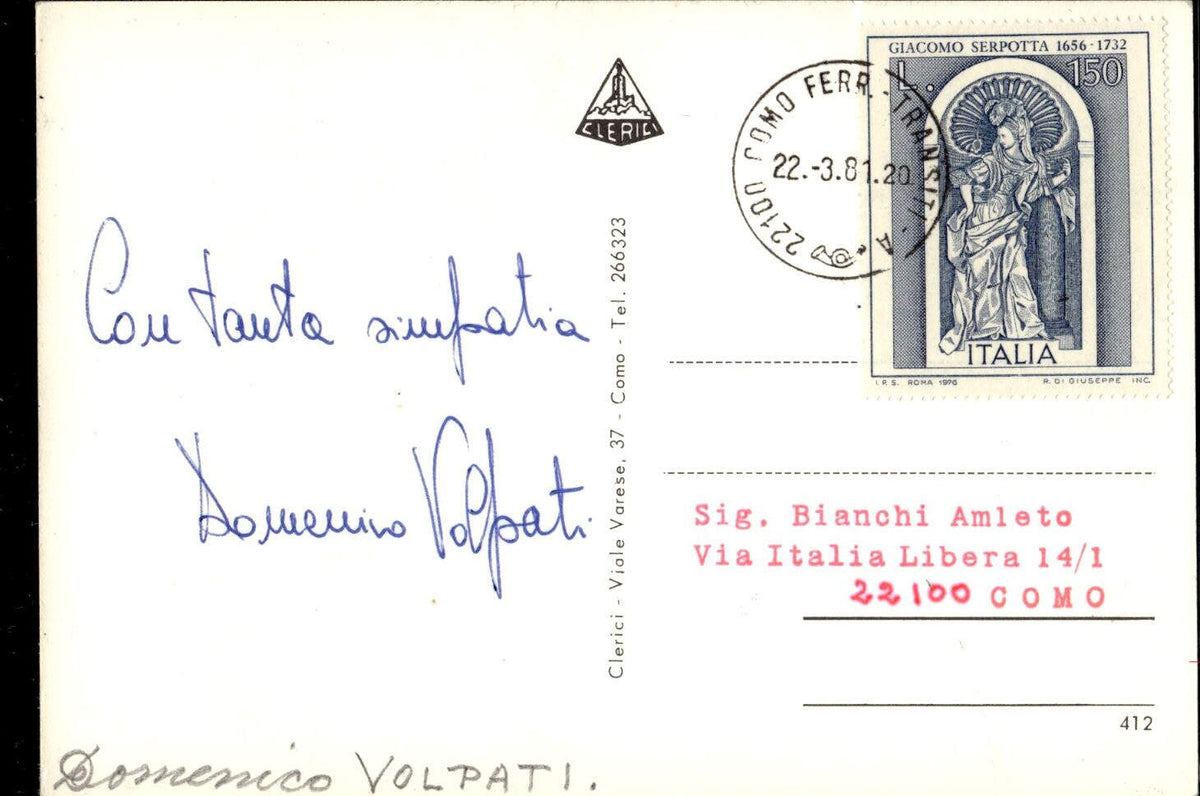 CLERICI
GIACOMO SERPOTTA 1656-1732
L. 150
ITALIA
I.P.S. ROMA 1976 R. DI GIUSEPPE INC.
22100 COMO FERR.-TRANSITI-A
22.-3.81.20
Con tanta simpatia
Domenico Volpati
Clerici - Viale Varese, 37 - Como - Tel. 266323
Sig. Bianchi Amleto
Via Italia Libera 14/1
22100 COMO
412
Domenico VOLPATI.